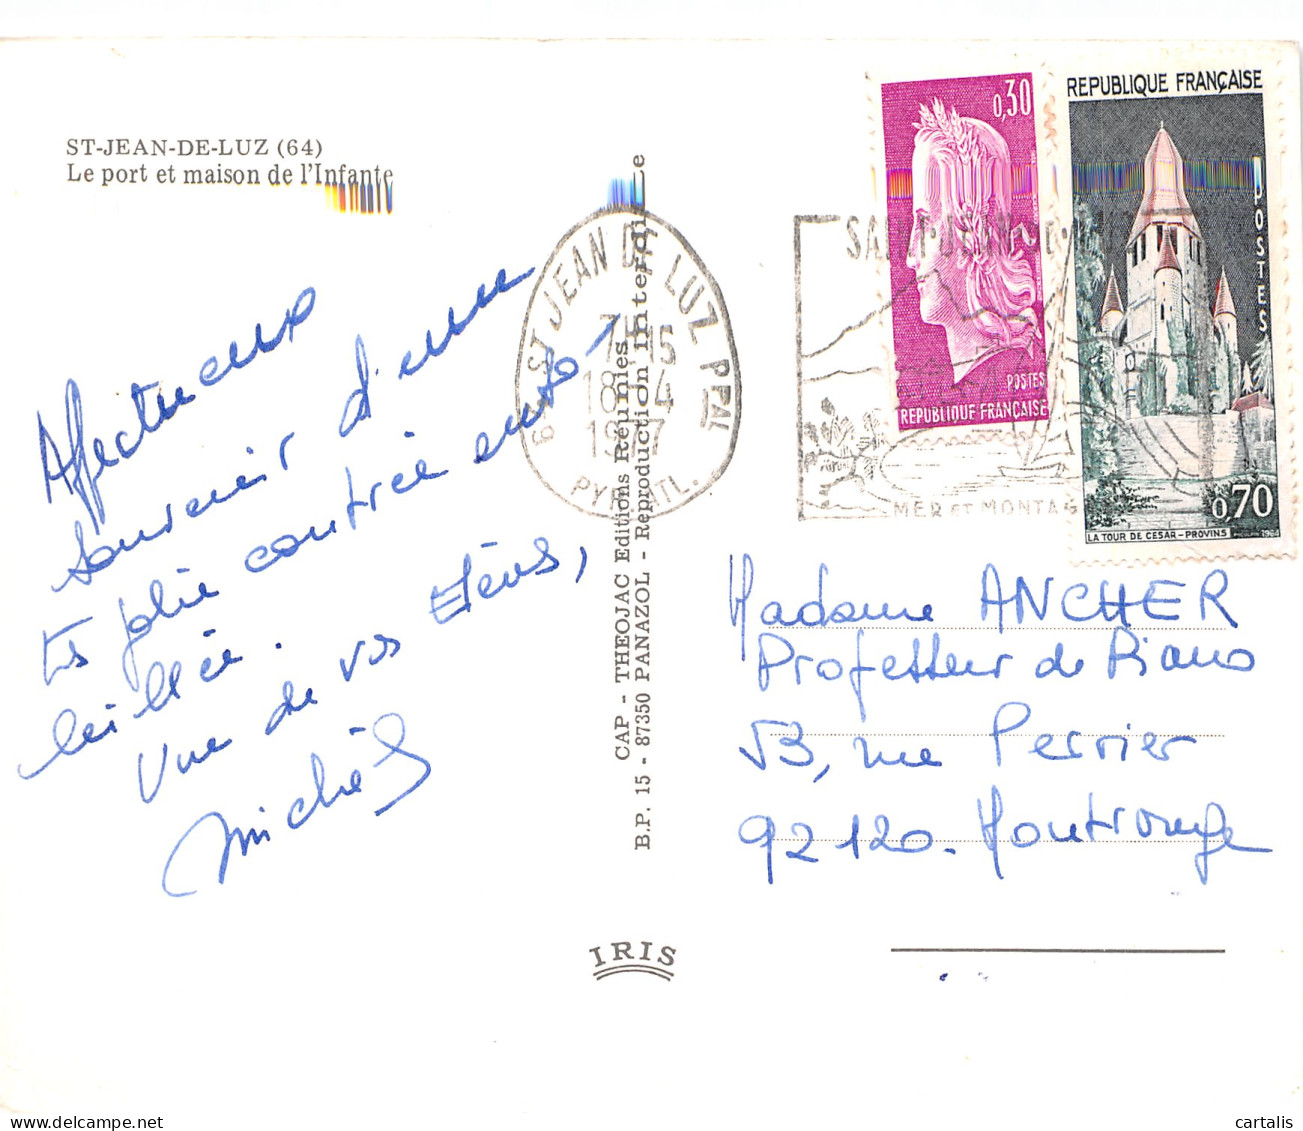 ST-JEAN-DE-LUZ (64)
Le port et maison de l'Infante
Affectueux
souvenir d'une
très jolie contrée enso-
leillée.
Vue de vos élèves,
Michèl
CAP - THEOJAC Editions Réunies
B.P. 15 - 87350 PANAZOL - Reproduction interdite
64 ST JEAN DE LUZ PPAL
7H15
18-4
PYR. ATL.
SAINT-JEAN-DE-LUZ
MER ET MONTAGNE
0,30
POSTES
REPUBLIQUE FRANÇAISE
REPUBLIQUE FRANÇAISE
POSTES
0,70
LA TOUR DE CESAR - PROVINS
Madame ANCHER
Professeur de Piano
53, rue Perrier
92120. Montrouge
IRIS
cartalis